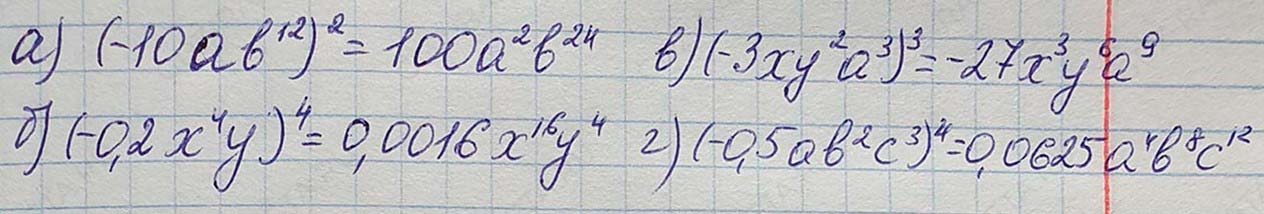 а) (-10ab¹²)² = 100a²b²⁴ в) (-3xy²a³)³ = -27x³y⁶a⁹
б) (-0,2x⁴y)⁴ = 0,0016x¹⁶y⁴ г) (-0,5ab²c³)⁴ = 0,0625a⁴b⁸c¹²